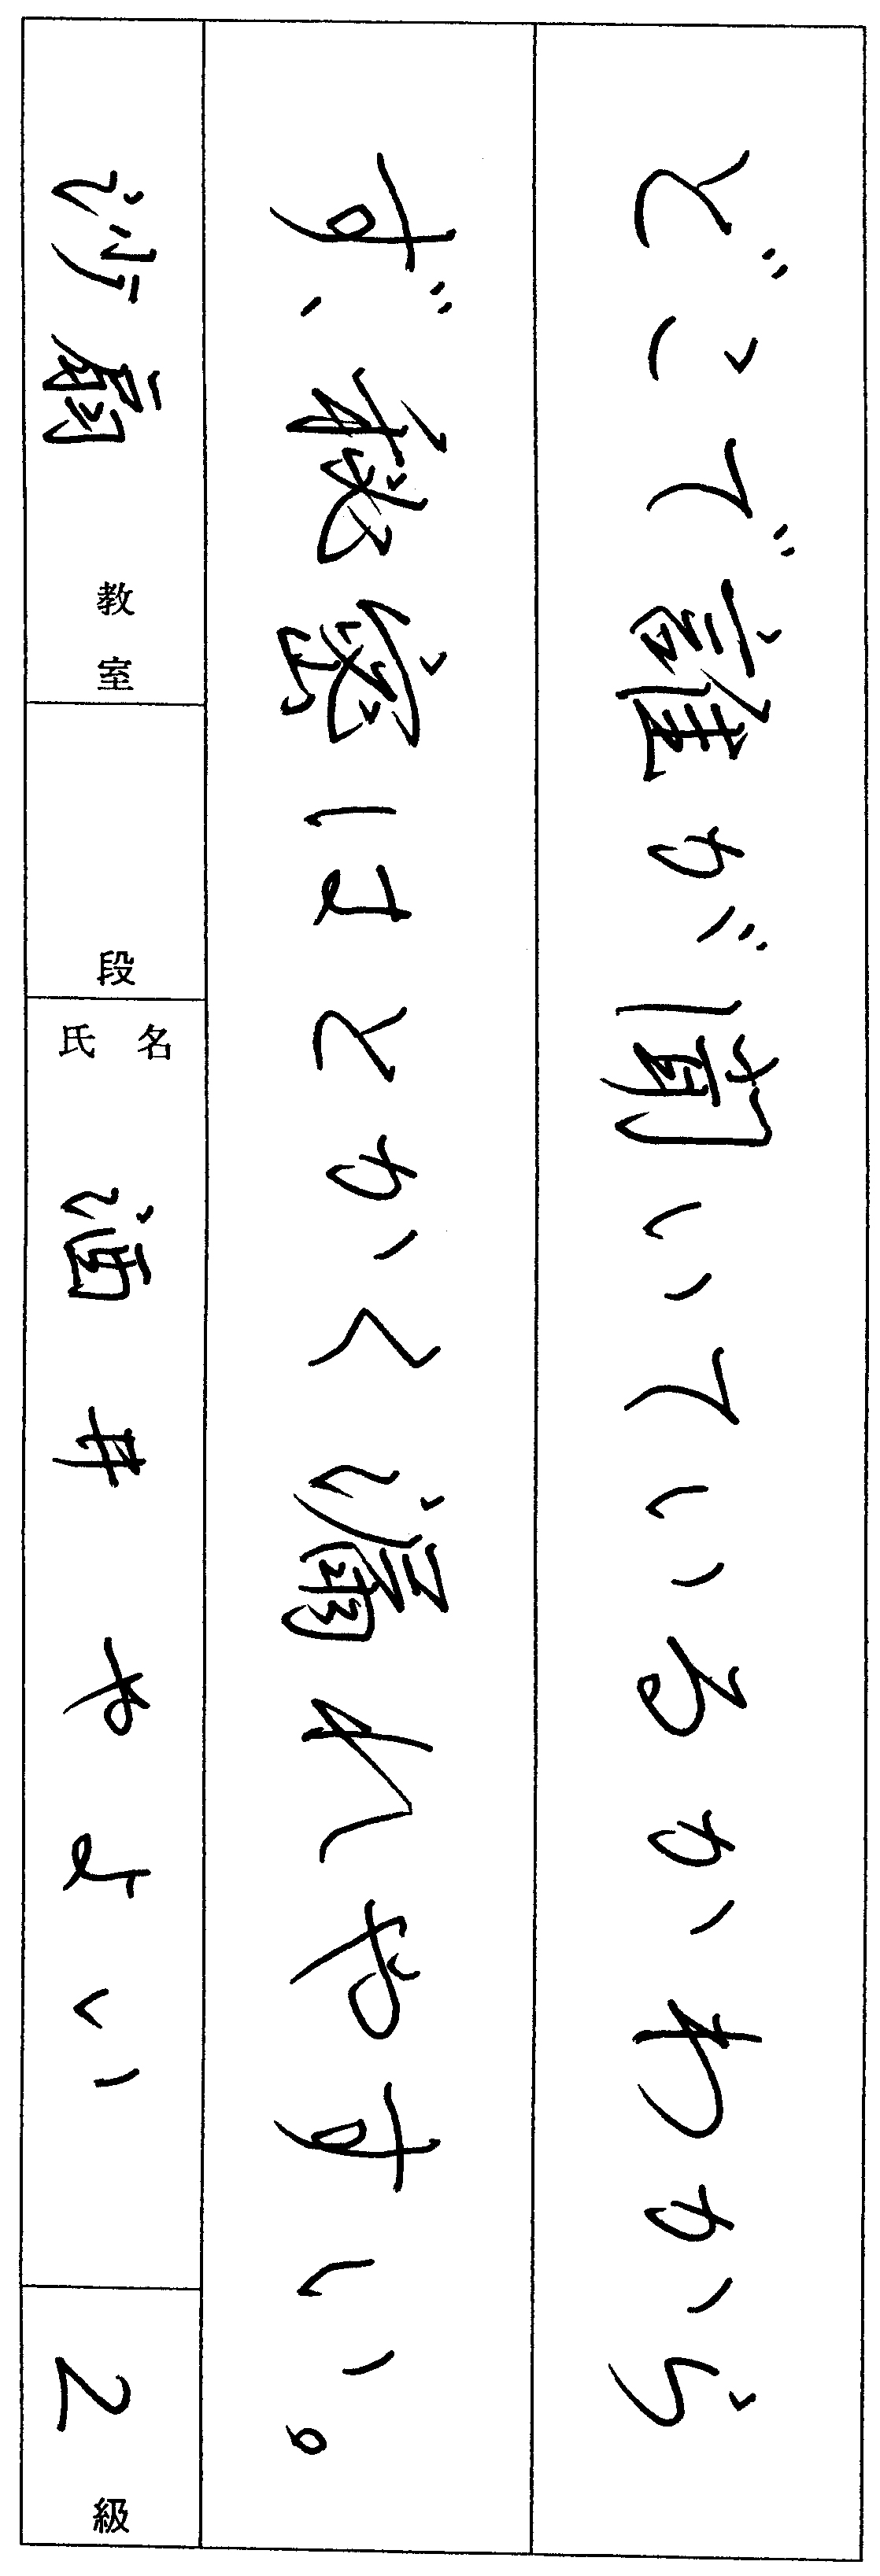 どこで誰が聞いているかわから
ず、秘密はとかく漏れやすい。
教室
段
氏名 酒井やよい
2級